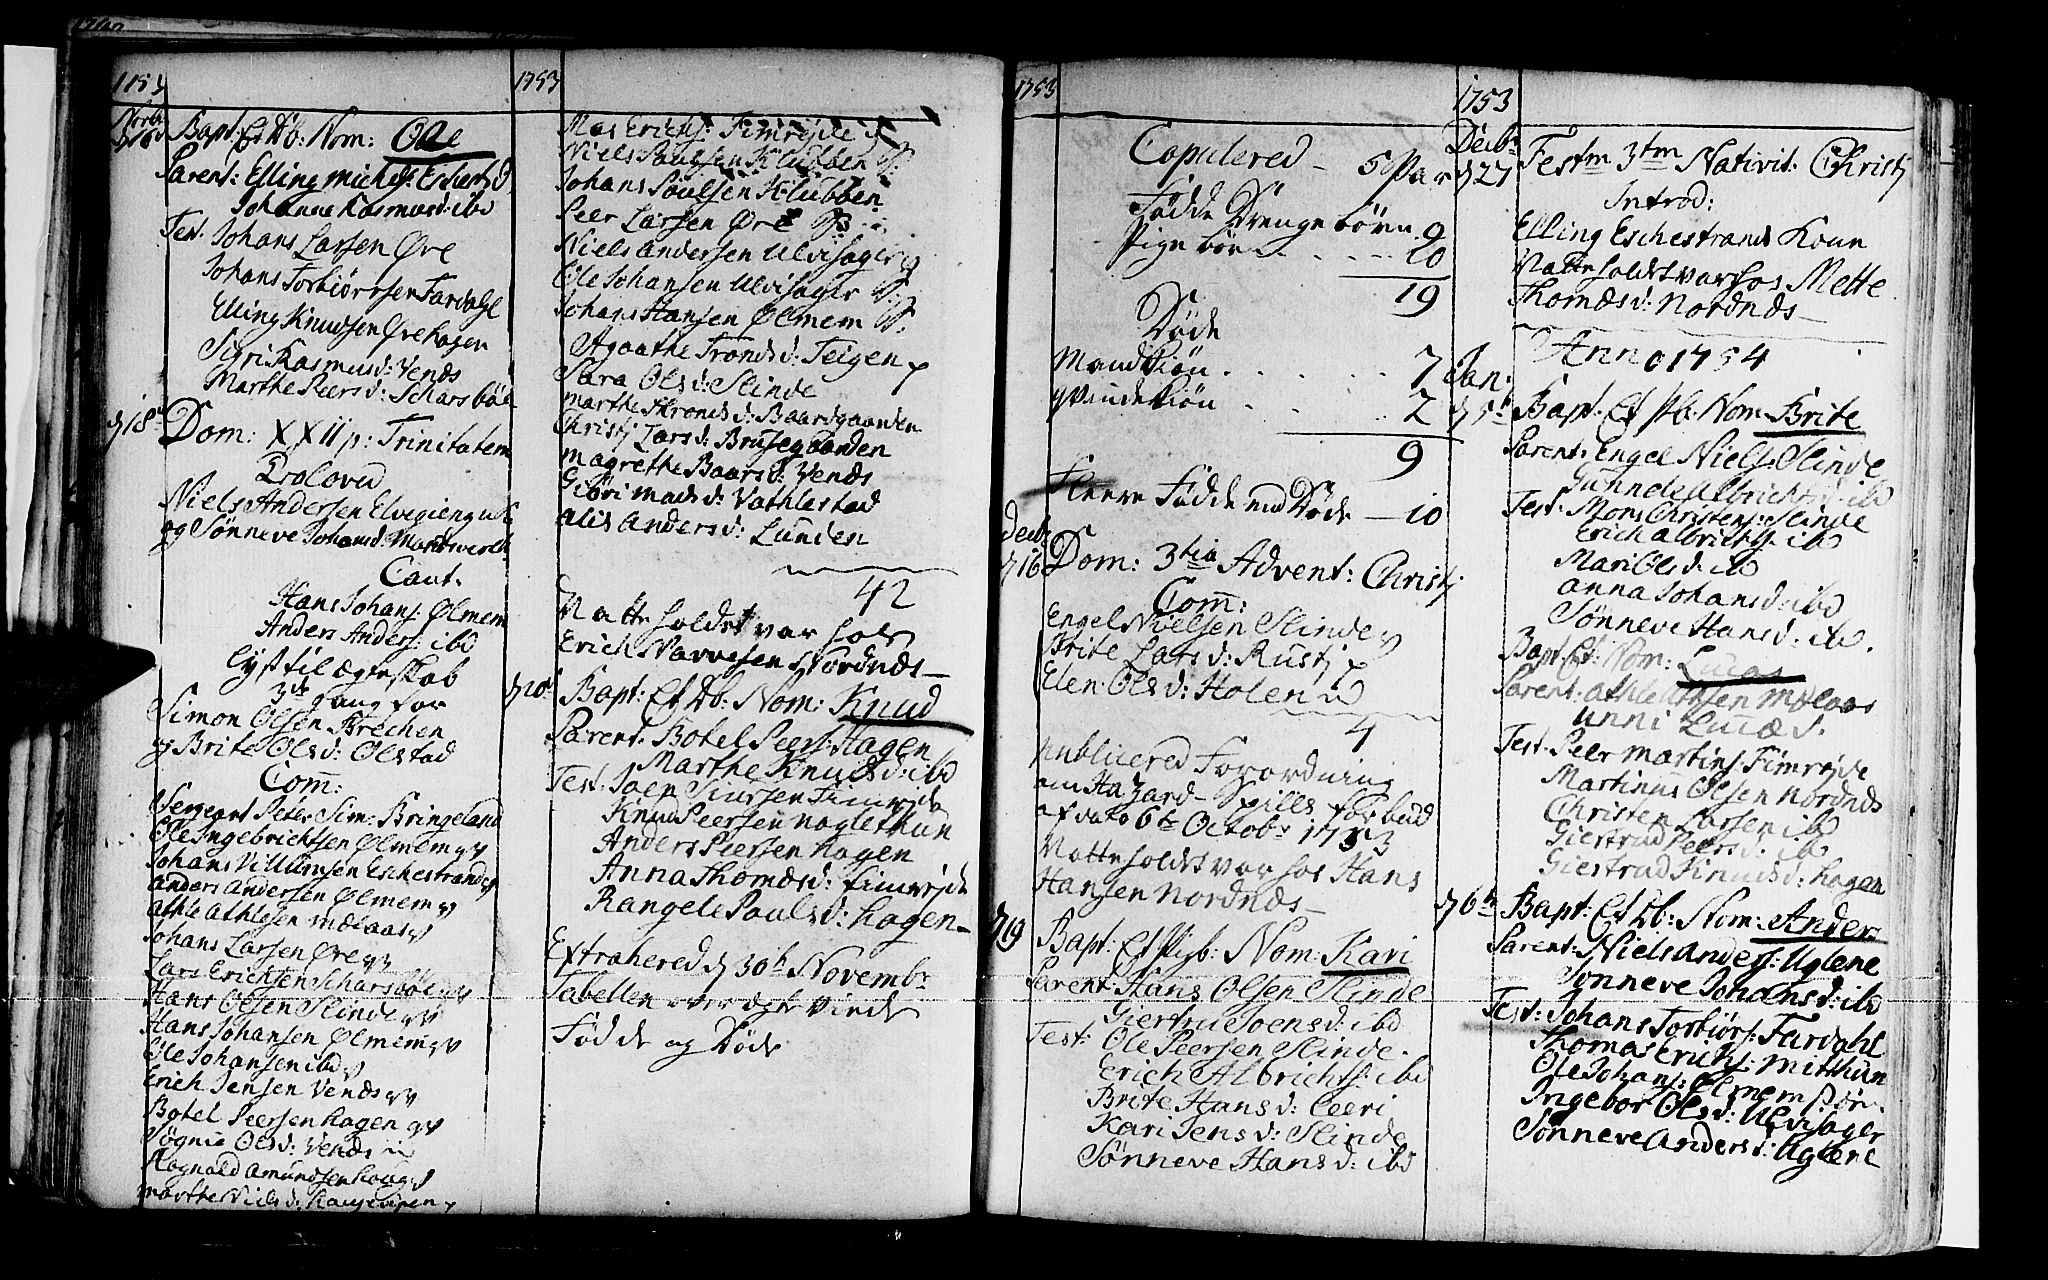 1753
Novb
d 16
Bapt: Et Db: Nom: Ole
Parent: Elling Michels: Eschestrd
Johanne Rasmusd: ibd
Test. Johans Larsen Øre
Johans Torbiørnsen Fardahl
Elling Knudsen Ørehagen
Sigri Rasmusd: Vends
Marthe Peersd: Scharsbøe
d 18
Dom: XXII p: Trinitatem
Trolovd
Niels Andersen
og Sønneve Johansd:
Caut.
Hans Johans: Ølmem
Anders Anders: ibd
Lyst til Ægteskab
3de Gang for
Simon Olsen Strechen
og Brite Olsd: Olstad
Com:
Sergeant Peter Sim: Bringeland
Ole Ingebrichtsen Ølmem
Johans Villumsen Eschestrand
Anders Andersen Ølmem
Athle Athlesen Mælaas
Johans Larsen Øre
Lars Erichsen Scharsbøe
Hans Olsen Slinde
Hans Johansen Ølmem
Ole Johansen ibd
Erich Jensen Vends
Botel Peersen Hagen
Søgnie Olsd: Vends
Ragnald Amundsen Houg
Marthe Nielsd:
1753
Mas Erichs: Fimrejte
Niels Poulsen Klubben
Johans Poulsen Klubben
Peer Larsen Øre
Niels Andersen Ulvisager
Ole Johansen Ulvisager
Johans Hansen Ølmem
Agaathe Tronds d: Teigen
Sara Olsd: Slinde
Marthe Thronds d: Baardgaarden
Christj Larsd: Brusegaarden
Magrethe Baarsd: Vends
Giøri Madsd: Vathlestad
Alis Andersd: Lunden
42
Natteholdet var hos
Erich Narvesen Nordnæs
d 20
Bapt: Et Db: Nom: Knud
Parent: Botel Peers: Hagen
Marthe Knudsd: ibd
Test. Joen Siursen Fimrejte
Knud Peersen Naglethun
Anders Peersen Hagen
Anna Thomæsd: Fimrejte
Rangele Paulsd: Hagen
Extrahered d 30h Novembr
Tabellen over Ægteviede
Fødde og Døde
1753
Copulered 5 Par
Fødde Drengebørn 9
Pigebørn 10
19
Døde
Mandkiøn 7
Qvindekiøn 2
9
Fleere Fødde end Døde 10
Decb
d 16
Dom: 3tia Advent: Christj
Com:
Engel Nielsen Slinde
Brite Larsd: Rustj
Elen Olsd: Holen
4
Publicered Forordning
om Hazard-Spills forbud
af dato 6te Octobr 1753
Natteholdet var hos Hans
Hansen Nordnæs
d 19
Bapt: Et Pgb: Nom: Kari
Parent: Hans Olsen Slinde
Giertrue Joensd: ibd
Test: Ole Peersen Slinde
Erich Albrichts: ibd
Brite Hansd: Leeri
Kari Jensd: Slinde
Sønneve Hansd: ibd
1753
Decbr
d 27
Festm 3tm Nativit: Christj
Introd:
Elling Eschestrands Kone
Natteholdet var hos Mette
Thomæsd: Nordnæs
Anno 1754
Jan:
d 5h
Bapt. Et Pb. Nom: Brite
Parent: Engel Niels: Slinde
Gunnele Albrichtsd: ibd
Test. Mons Christens: Slinde
Erich Albrichts: ib
Mari Olsd: ib
Anna Johansd: ibd
Sønneve Hansd: ib.
Bapt: Et: Nom: Lucas
Parent. Athle Mælaas
Unni Lucæd.
Test. Peer Martins: Fimrejte
Martinus Olsen Nordnæs
Christen Larsen ib
Giertrud Peersd: ib
Giertrud Knudsd: Hagen
d 6h
Bapt: Et Db: Nom: Anders
Parent: Niels Anders: Uglene
Sønneve Johansd: ibd
Test: Johans Torbiørs: Fardahl
Thomas Erichs: Mitthun
Ole Johans: Ølmem
Ingebor Olsd: Ulvisager
Sønneve Andersd: Uglene